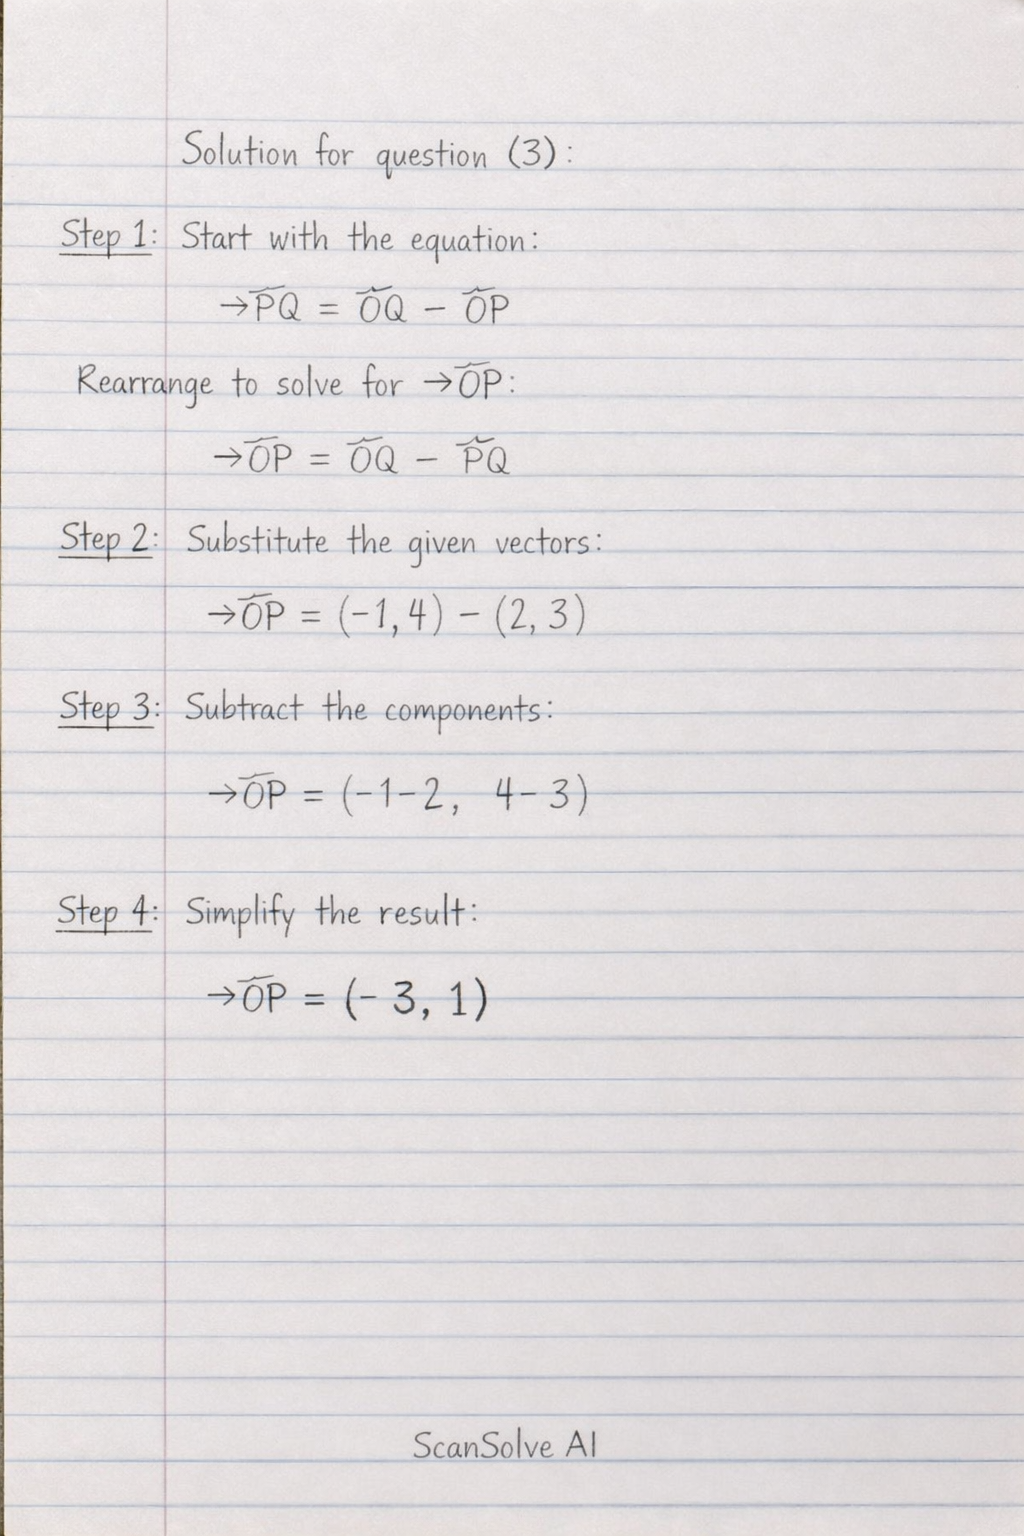 Solution for question (3):
Step 1: Start with the equation:
→P̅Q̅ = O̅Q̅ − O̅P̅
Rearrange to solve for →O̅P̅:
→O̅P̅ = O̅Q̅ − P̅Q̅
Step 2: Substitute the given vectors:
→O̅P̅ = (-1, 4) − (2, 3)
Step 3: Subtract the components:
→O̅P̅ = (-1-2, 4-3)
Step 4: Simplify the result:
→O̅P̅ = (-3, 1)
ScanSolve AI